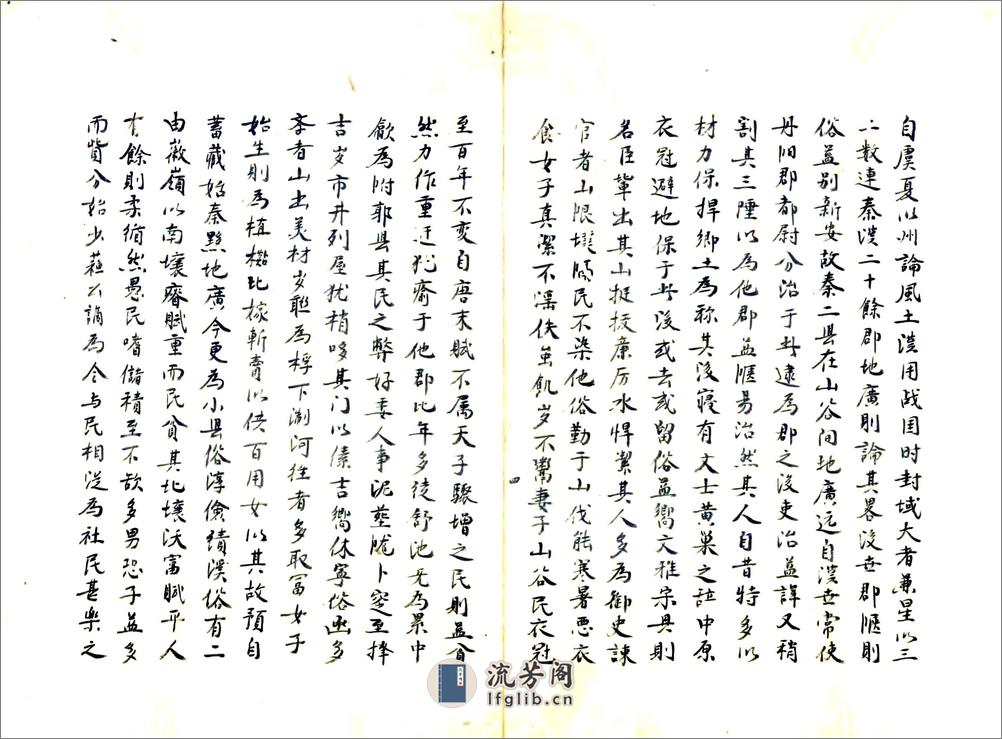 自虞夏以州論風土漢用战国时封域大者兼星以三
二数連秦漢二十餘郡地廣則論其畧後世郡陿則
俗益别新安故秦二县在山谷间地廣远自漢世常使
丹阳郡都尉分治于此逮为郡之後吏治益詳又稍
割其三陲以為他郡益陿易治然其人自昔特多以
材力保捍鄉土為称其後寝有文士黄巢之乱中原
衣冠避地保于此後或去或留俗益嚮文雅宋興則
名臣輩出其山挺拔廉厉水悍潔其人多為御史諫
官者山限壤隔民不染他俗勤于山伐能寒暑恶衣
食女子真潔不淫佚虽飢岁不鬻妻子山谷民衣冠
四
至百年不变自唐末赋不属天子驟增之民則益贫
然力作重迁犹愈于他郡比年多徙舒池无為界中
歙為附郭县其民之弊好委人事泥塟陇卜窆至择
吉岁市井列屋犹稍哆其门以傃吉嚮休寧俗亟多
学者山出美材岁联為桴下淛河往者多取富女子
始生則為植檆比嫁斬賣以供百用女以其故預自
蓄藏始秦黟地廣今更為小县俗淳儉績溪俗有二
由徽嶺以南壤瘠赋重而民贫其北壤沃富赋平人
有餘則柔循然愚民嗜儲積至不欲多男恐子益多
而貲分始少蘇公謫為令与民相従為社民甚樂之
流芳阁
lfglib.cn